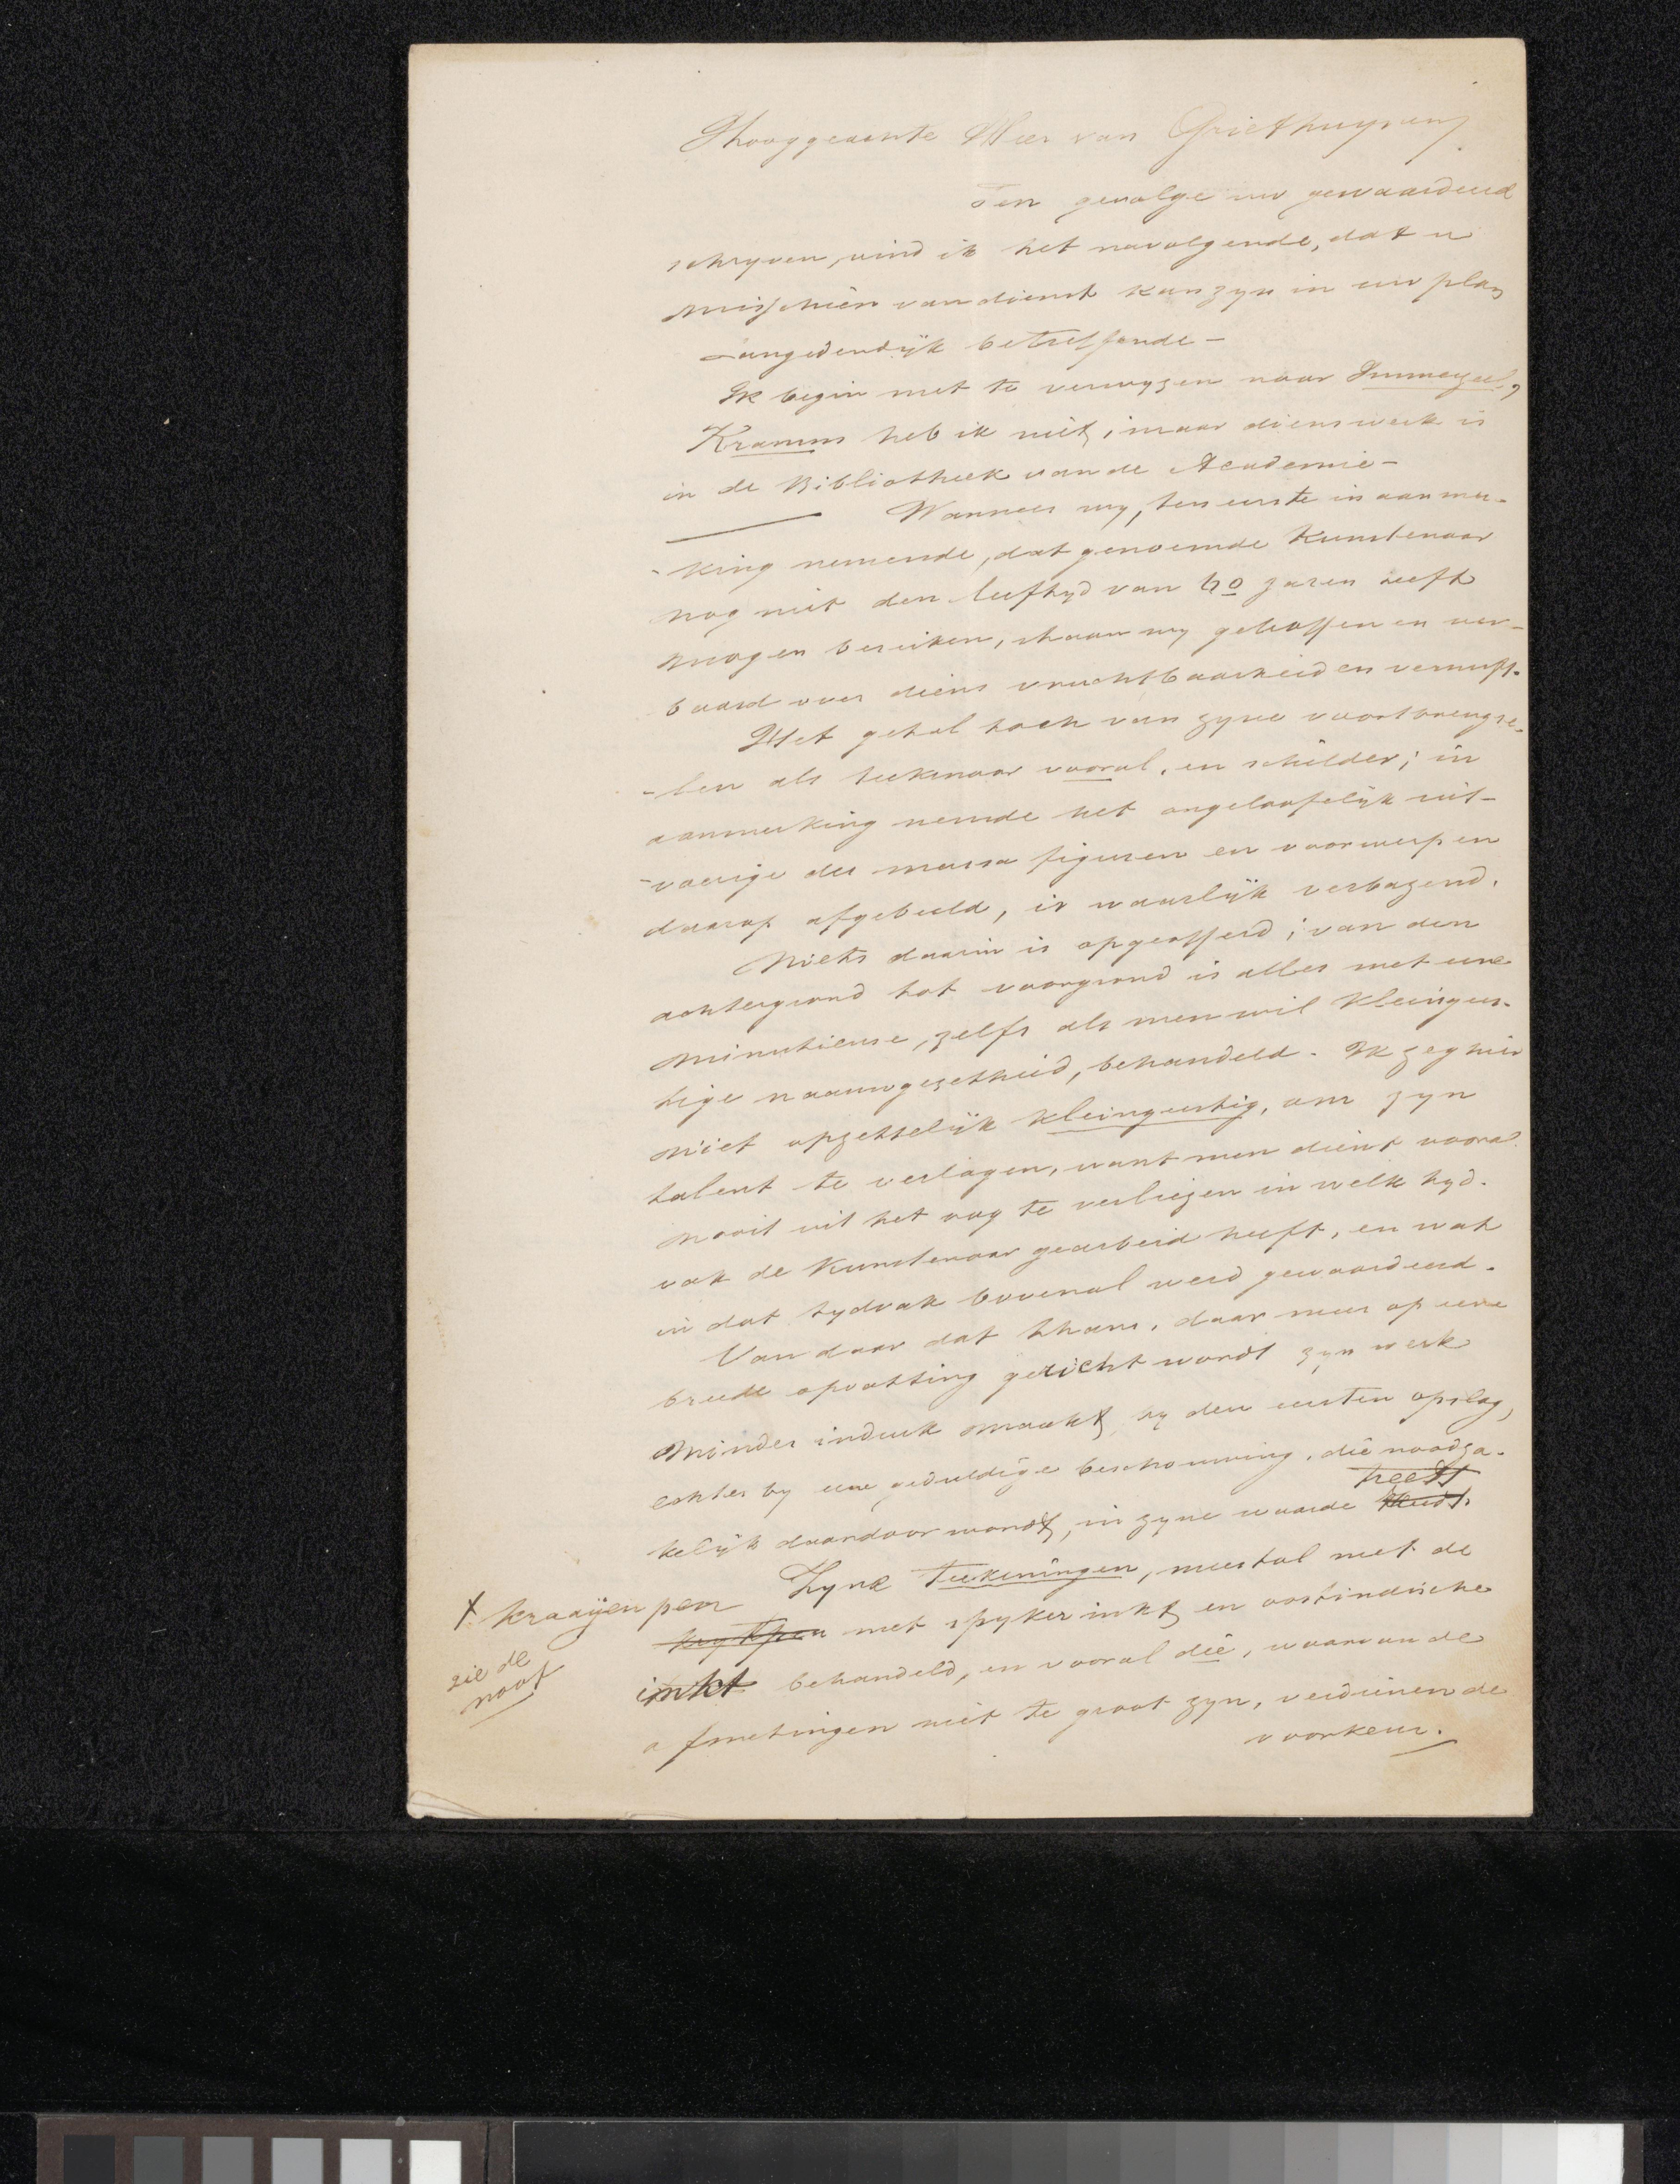 Hooggeachte Heer van Griethuysen,
Ten gevolge uw gewaardeerd
schryven, vind ik het navolgende, dat u
misschien van dienst kan zyn in uw plan
Langedendÿk betreffende –
Ik begin met te verwyzen naar Immerzeel,
Kramm heb ik niet, maar diens werk is
in de Bibliotheek van de Academie –
Wanneer wy, ten eerste in aanmer-
-king nemende, dat genoemde Kunstenaar
nog niet den leeftyd van 60 jaren heeft
mogen bereiken, staan wy getroffen en ver-
baasd over diens vruchtbaarheid en vernuft.
Het getal toch van zyne voortbrengse-
-len als teekenaar vooral, en schilder; in
aanmerking nemde het ongeloofelÿk uit-
-voerige der massa figuren en voorwerpen
daarop afgebeeld, is waarlÿk verbazend.
Niets daarin is opgeofferd; van den
achtergrond tot voorgrond is alles met eene
minutieuse, zelfs als men wil kleingees-
tige naauwgezetheid, behandeld. Ik zeg hier
niet opzettelÿk kleingeestig, om zyn
talent te verlagen, want men dient vooral
nooit uit het oog te verliezen in welk tyd-
vak de Kunstenaar gearbeid heeft, en wat
in dat tydvak bovenal werd gewaardeerd.
Van daar dat thans, daar meer op eene
breede opvatting gericht wordt zyn werk
minder indruk maakt, by den eersten opslag,
echter by eene geduldige beschouwing, die noodza-
kelÿk daardoor wordt, in zyne waarde heeft
Zyne Teekeningen, meestal met de
X Kraaÿenpen krytpen met spyker inkt en oostindische
zie de
noot
inkt behandeld, en vooral die, waarvan de
afmetingen niet te groot zyn, verdienen de
voorkeur.